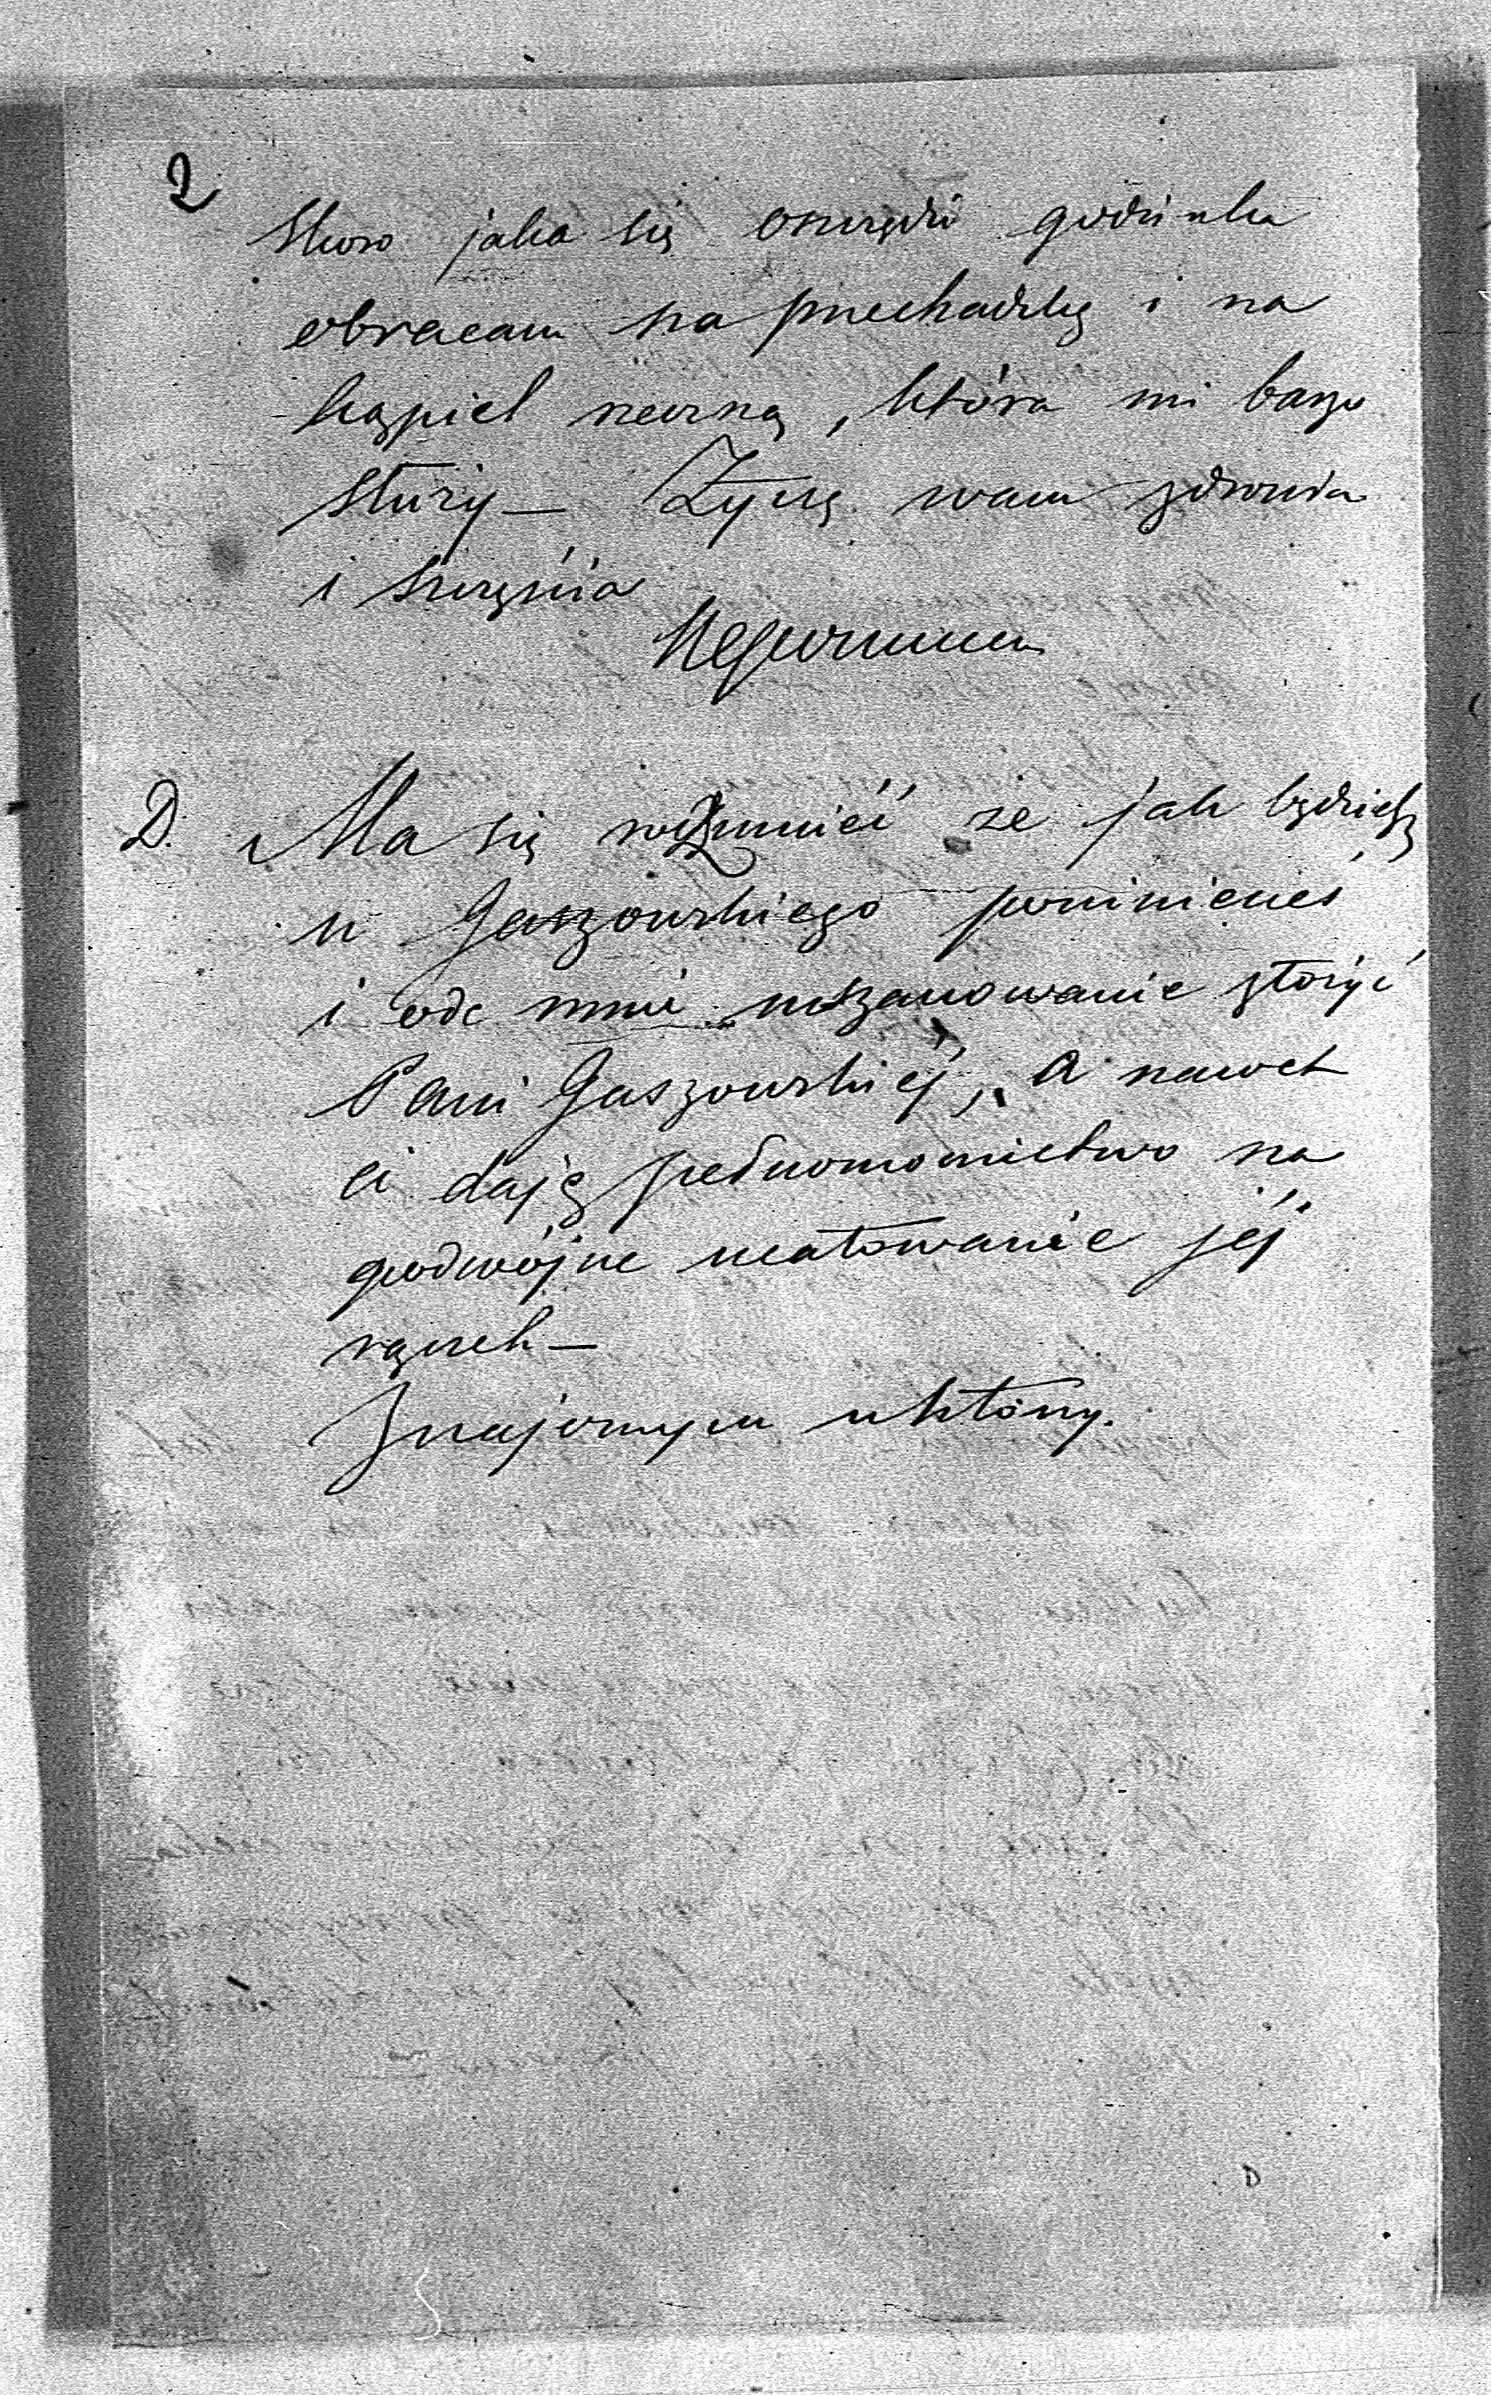 2
Skoro jaka się oszczędzi godzinka
obracam na przechadzkę i na
kąpiel rzeczną, która mi barzo
służy — Życzę wam zdrowia
i szczęścia
Nepomucen
D. Ma się rozumieć że jak będziesz
u Gaszowskiego powinieneś
i ode mnie uszanowanie złożyć
Pani Gaszowskiej, a nawet
ci daję pełnomocnictwo na
podwójne ucałowanie jéj
rączek —
Znajomym ukłony.